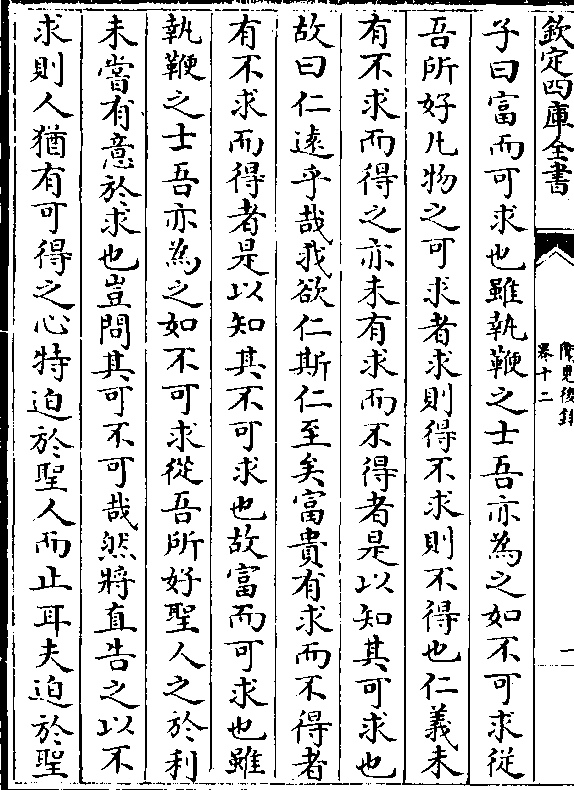 欽定四庫全書
聞見後錄
卷十二
一
子曰富而可求也雖執鞭之士吾亦為之如不可求從
吾所好凡物之可求者求則得不求則不得也仁義未
有不求而得之亦未有求而不得者是以知其可求也
故曰仁遠乎哉我欲仁斯仁至矣富貴有求而不得者
有不求而得者是以知其不可求也故富而可求也雖
執鞭之士吾亦為之如不可求從吾所好聖人之於利
未嘗有意於求也豈問其可不可哉然將直告之以不
求則人猶有可得之心特迫於聖人而止耳夫迫於聖